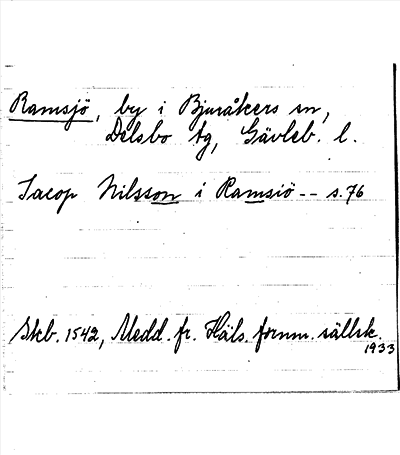 Ramsjö, by i Bjuråkers sn,
Delsbo tg, Gävleb. l.
Jacop Nilsson i Ramsiö -- s. 76
Skb. 1542, Medd. fr. Häls. fornm. sällsk.
1933